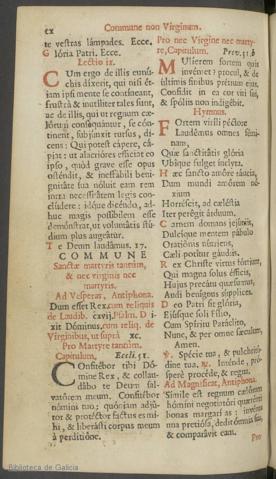 cx Commune non Virginum.
te vestras lámpades. Ecce.
Glória Patri. Ecce.
Lectio ix.
CUm ergo de illis eunú-
chis díxerit, qui nisi ét-
iam ipsi mente se contíneant,
frustrà & inutíliter tales sunt,
ac de illis, qui ut regnum cæ-
lórum consequántur, se cón-
tinent, subjúnxit rursus, di-
cens: Qui potest cápere, cá-
piat: ut alacrióres efficiat eo
ipso, quòd grave esse opus
osténdit, & ineffábili beni-
gnitáte sua nóluit eam rem
intra necessitátem legis con-
clúdere: idque dicéndo, ad-
huc magis possíbilem esse
demónstrat, ut voluntátis stú-
dium plus augeátur.
Te Deum laudámus. 17.
COMMUNE
Sanctæ martyris tantùm,
& nec virginis nec
martyris.
Ad Vesperas, Antiphona.
Dum esset Rex. cum reliquis
de Laudib. cxvij. Psalm. Di
xit Dóminus. cum reliq. de
Virginibus, ut suprà xc.
Pro Martyre tantùm,
Capitulum, Eccli. 51.
COnfitébor tibi Dó-
mine Rex, & collau-
dábo te Deum sal-
vatórem meum. Confitébor
nómini tuo: quóniam adjú-
tor & protéctor factus es mi-
hi, & liberásti corpus meum
à perditióne.
Pro nec Virgine nec marty-
re, Capitulum, Prov. 31. b
MUlíerem fortem quis
invéniet? procul, & de
últimis fínibus prétium ejus.
Confídit in ea cor viri sui,
& spóliis non indigébit.
Hymnus.
FOrtem viríli péctore
Laudémus omnes fémi-
nam,
Quæ sanctitátis glória
Ubíque fulget ínclyta.
Hæc sancto amóre sáucia,
Dum mundi amórem nó-
xium
Horréscit, ad cæléstia
Iter perégit árduum.
Carnem domans jejúniis,
Dulcíque mentem pábulo
Oratiónis nútriens,
Cæli potítur gáudiis.
Rex Christe virtus fórtium,
Qui magna solus éfficis,
Hujus precátu quǽsumus,
Audi benígnus súpplices.
Deo Patri sit glória,
Ejúsque soli Fílio,
Cum Spíritu Paráclito,
Nunc, & per omne sǽculum,
Amen.
℣. Spécie tua, & pulchritú-
dine tua. ℟. Inténde, pró-
sperè procéde, & regna.
Ad Magnificat, Antiphona.
Símile est regnum cælórum
hómini negotiatóri quærénti
bonas margarítas: invénta
una pretiósa, dedit ómnia sua,
& comparávit eam.
Pro
Biblioteca de Galicia